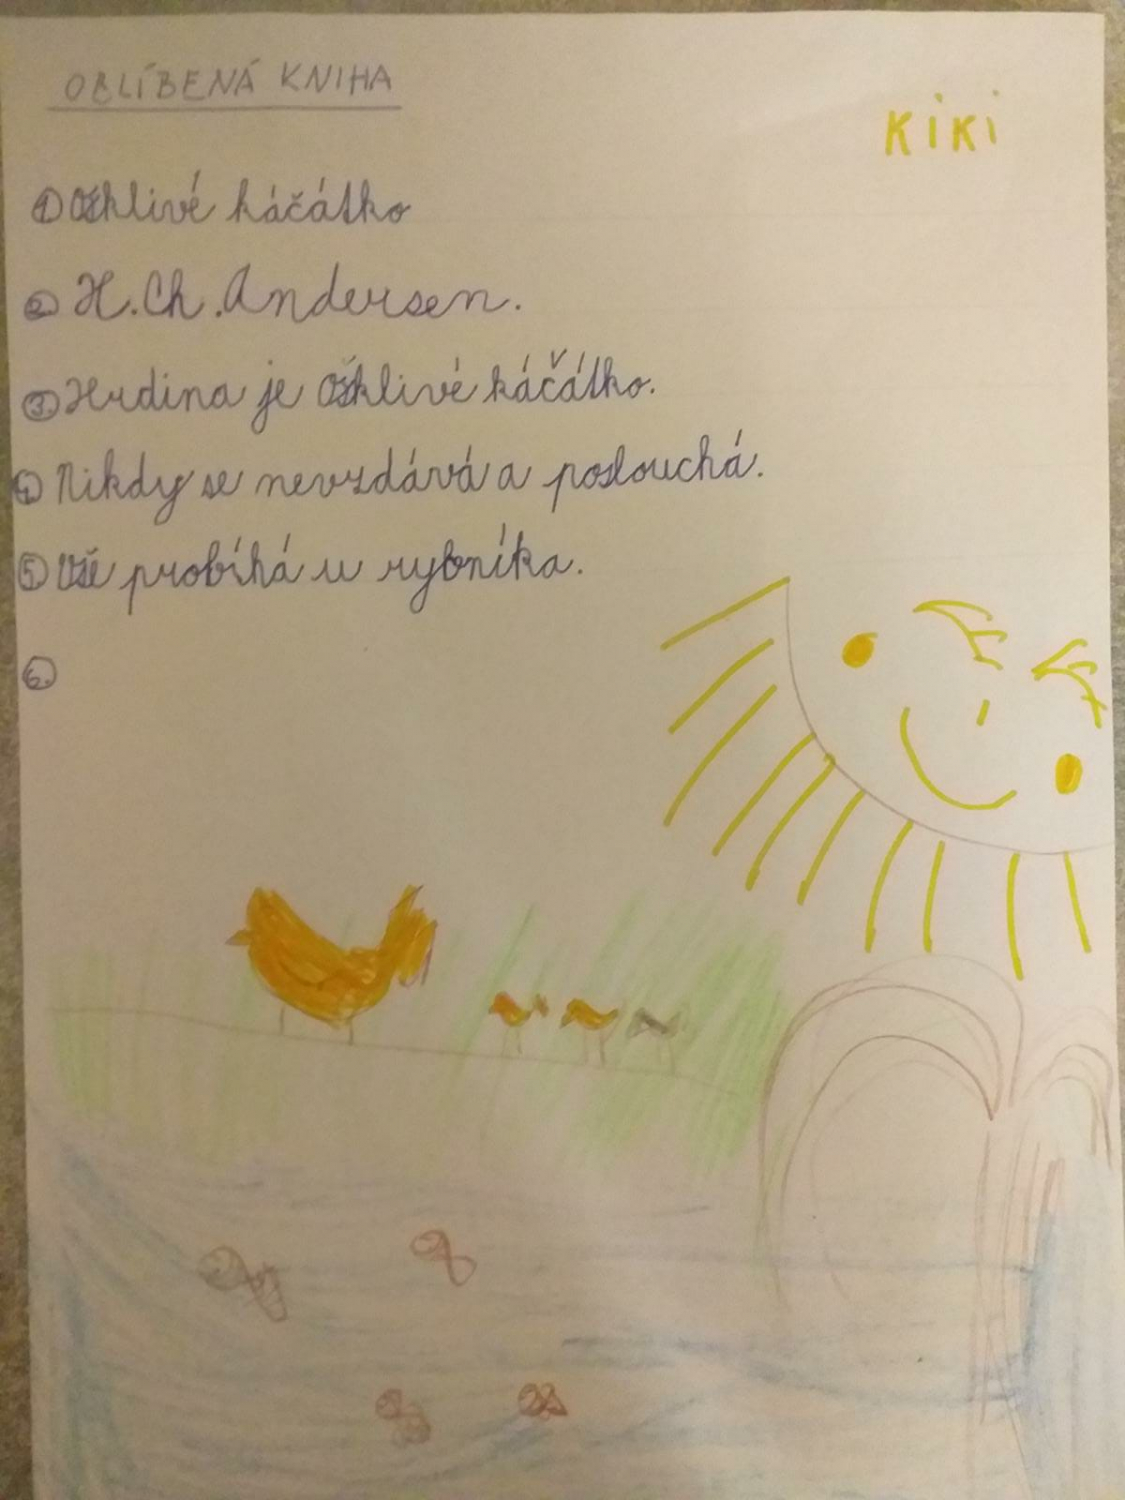 OBLÍBENÁ KNIHA
KiKi
1. Ošklivé káčátko
2. H. Ch. Andersen.
3. Hrdina je Ošklivé káčátko.
4. Nikdy se nevzdává a poslouchá.
5. Vše probíhá u rybníka.
6.